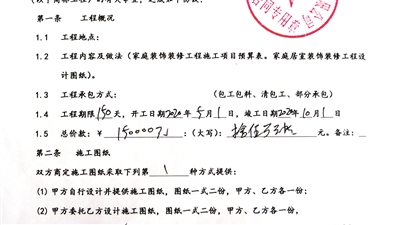 第一条 工程概况
1.1 工程地点：
1.2 工程内容及做法（家庭装饰装修工程施工项目预算表。家庭居室装饰装修工程设
计图纸）。
1.3 工程承包方式： （包工包料、清包工、部分承包）
1.4 工程期限150天，开工日期2020年5月1日，竣工日期2020年10月1日
1.5 总价款：￥150000元：（大写）：拾伍万元。备注：
第二条 施工图纸
双方商定施工图纸采取下列第1种方式提供：
(1) 甲方自行设计并提供施工图纸，图纸一式二份，甲方、乙方各一份；
(2) 甲方委托乙方设计施工图纸，图纸一式二份，甲方、乙方各一份；